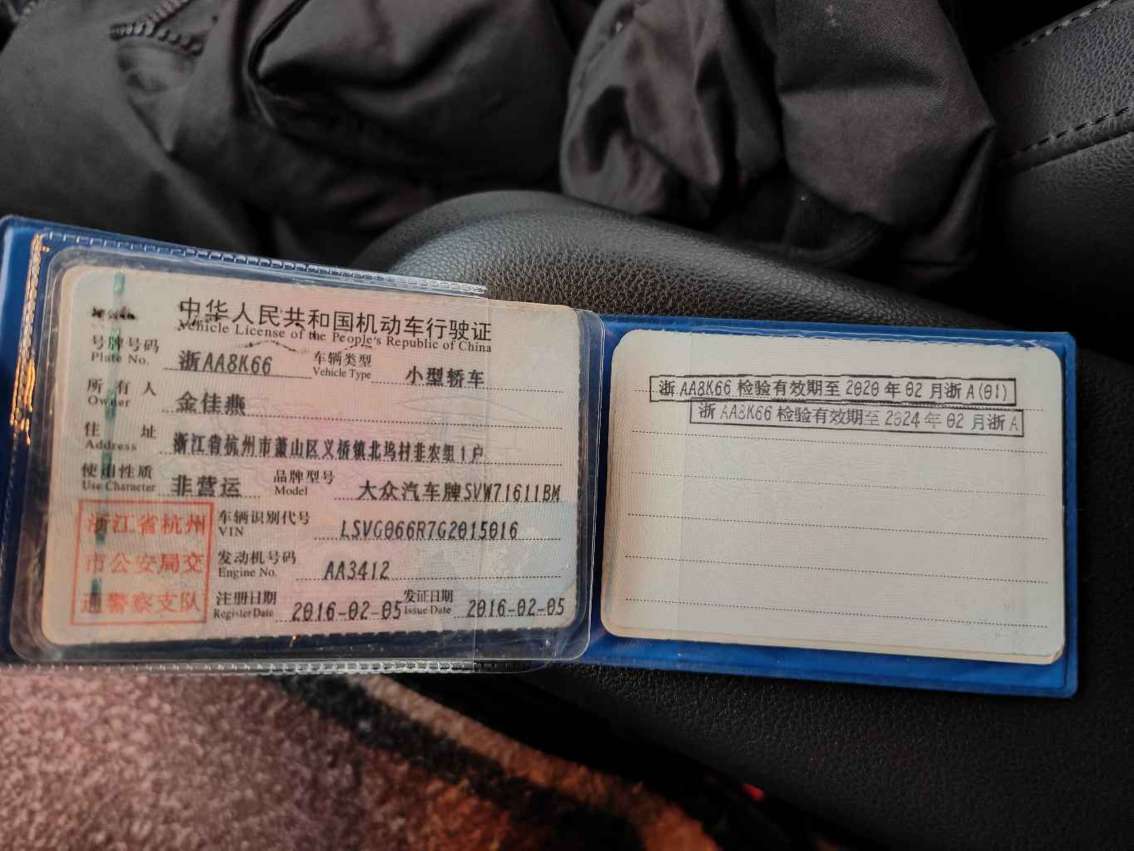 中华人民共和国机动车行驶证
Vehicle License of the People's Republic of China
号牌号码 浙AA8K66 车辆类型 小型轿车
Plate No. Vehicle Type
所有人 金佳燕
Owner
住址 浙江省杭州市萧山区义桥镇北坞村非农组1户
Address
使用性质 非营运 品牌型号 大众汽车牌SVW71611BM
Use Character Model
浙江省杭州
市公安局交
通警察支队
车辆识别代号 LSVG066R7G2015016
VIN
发动机号码 AA3412
Engine No.
注册日期 2016-02-05 发证日期 2016-02-05
Register Date Issue Date
浙AA8K66 检验有效期至 2020 年 02 月浙A(01)
浙AA8K66 检验有效期至 2024 年 02 月浙A